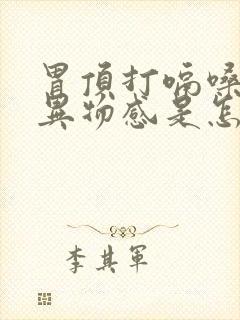 胃顶打嗝嗓
异物感是怎
李其军